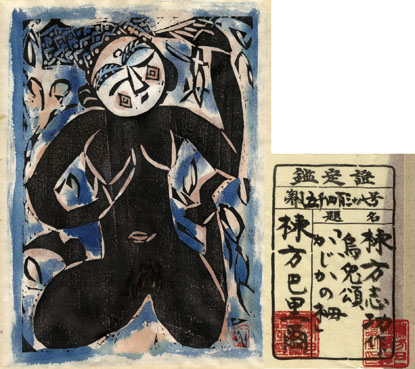 鑑定證
題名
棟方志功作
烏兎頌
かじかの柵
棟方巴里爾